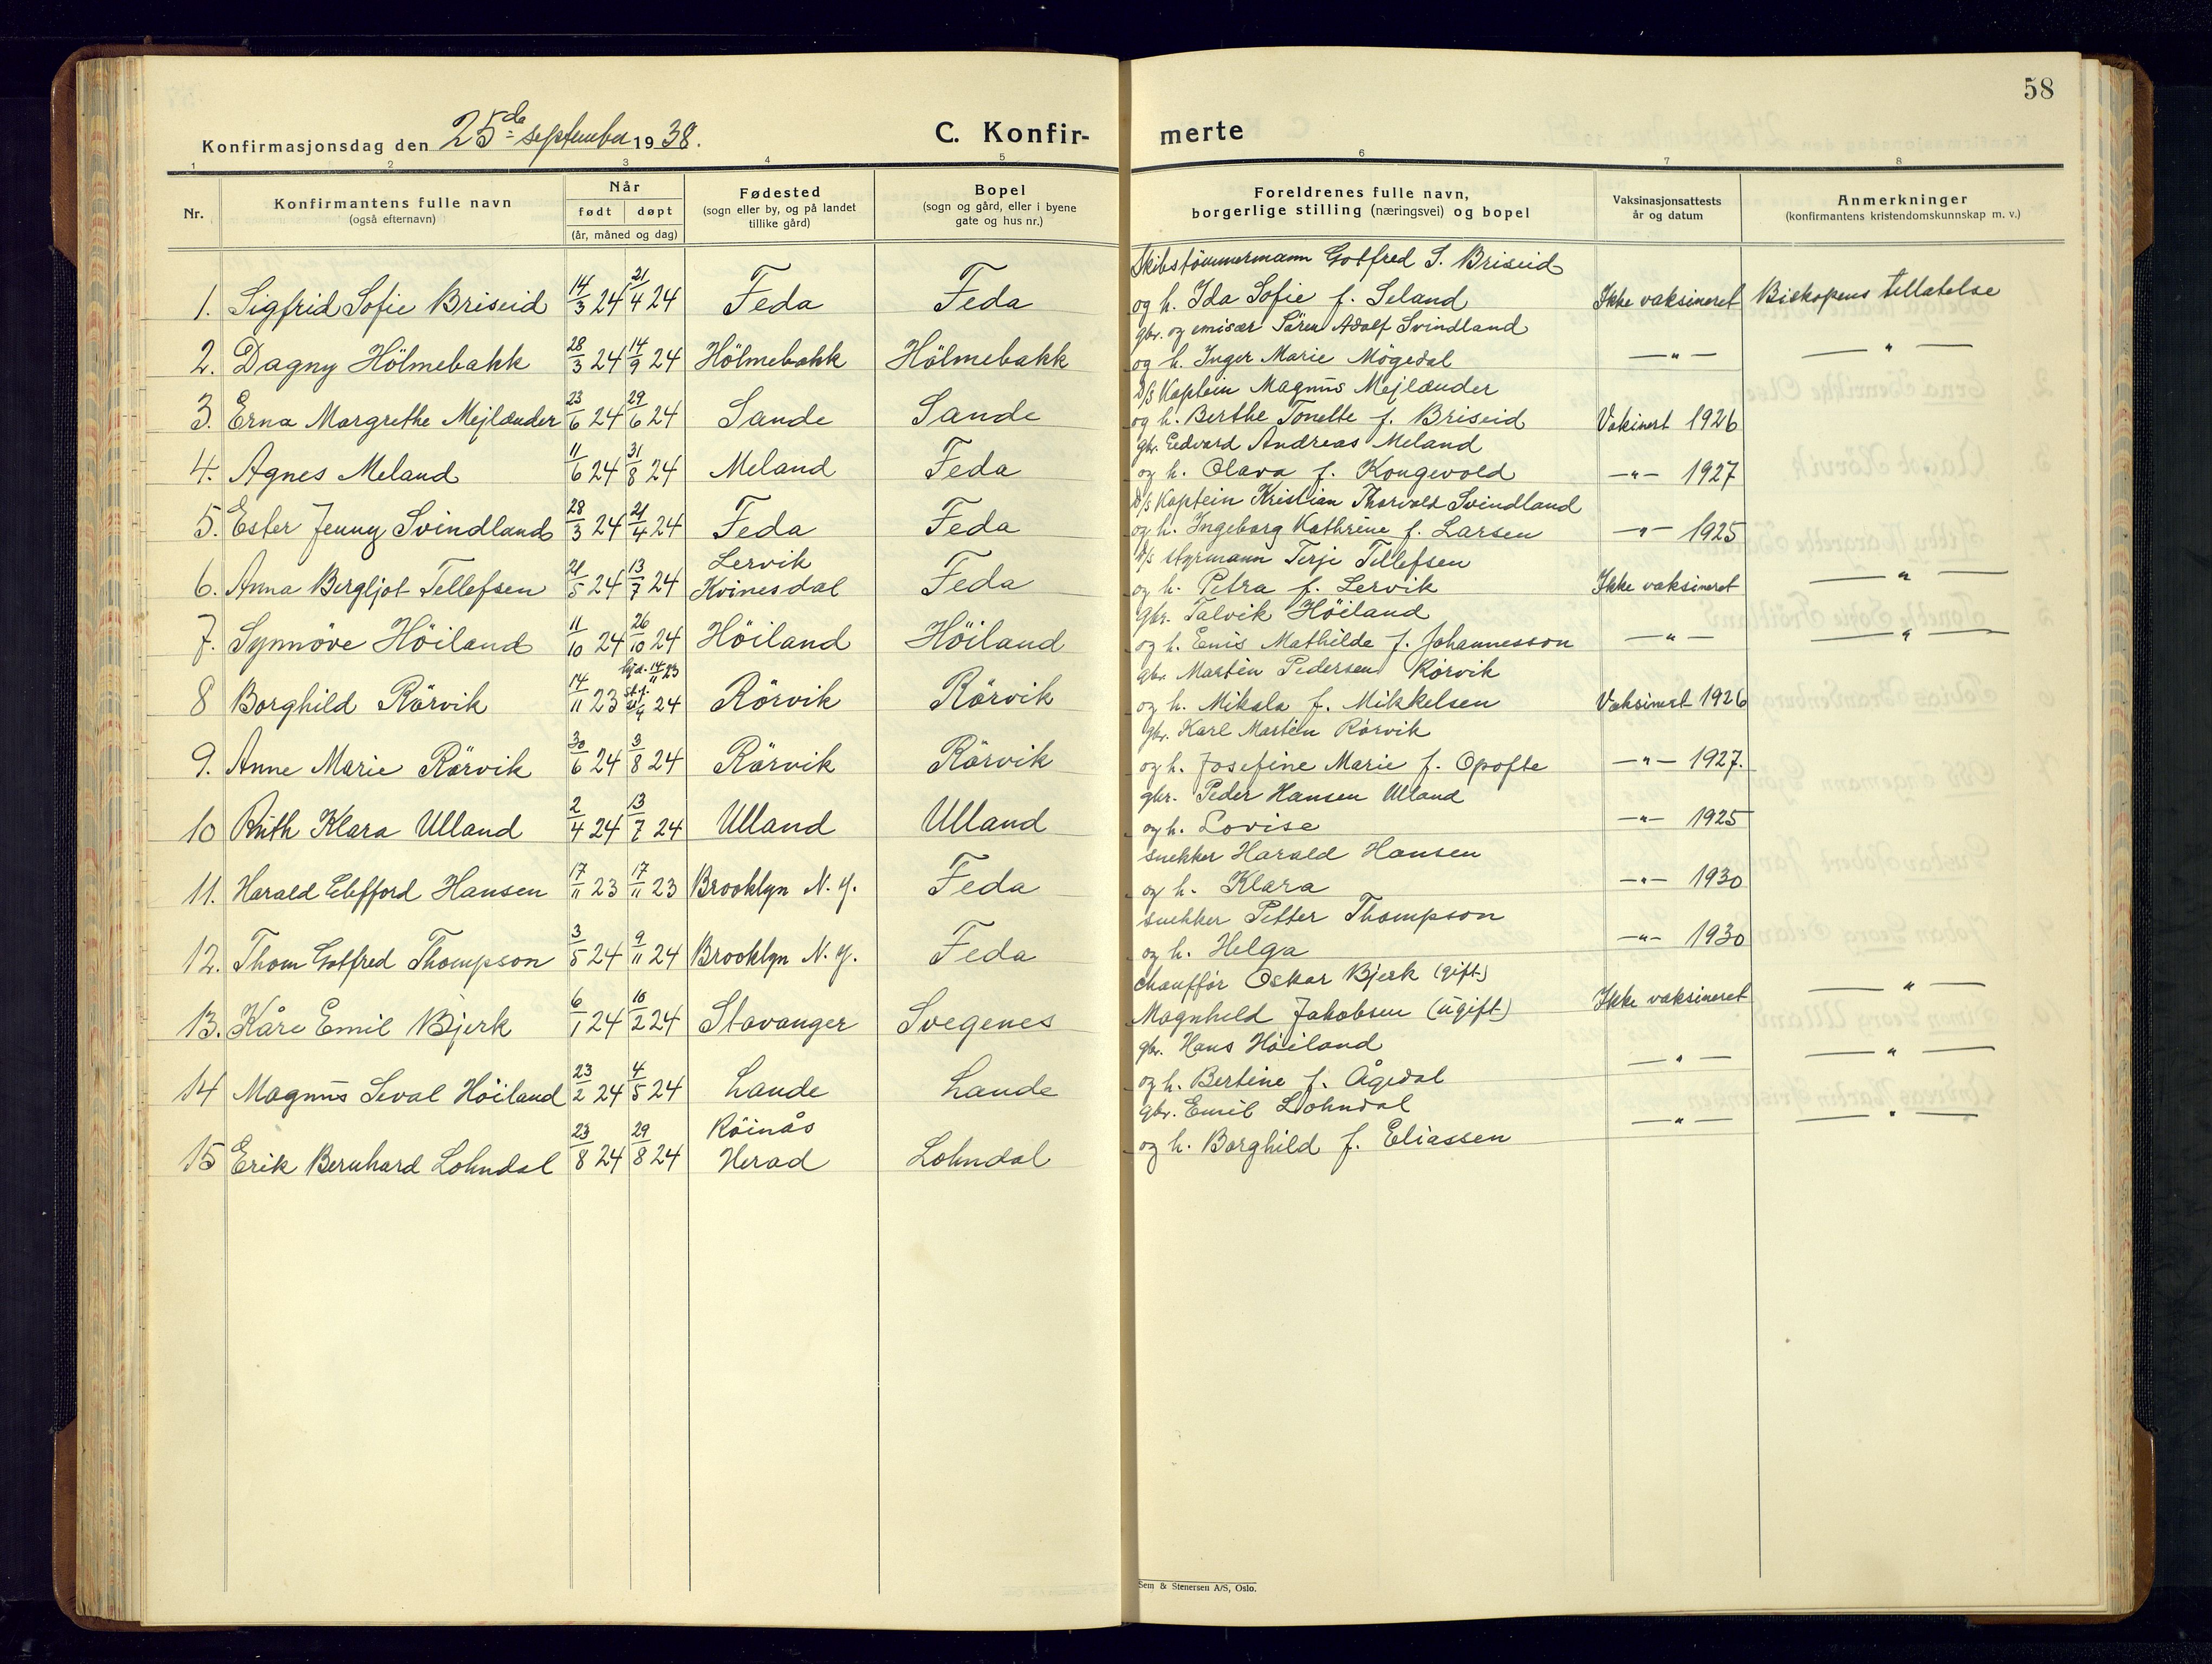 58
Konfirmasjonsdag den 25de september 1938.
C. Konfirmerte
1 2 3 4 5 6 7 8
Nr.
Konfirmantens fulle navn
(også efternavn)
Når
født døpt
(år, måned og dag)
Fødested
(sogn eller by, og på landet
tillike gård)
Bopel
(sogn og gård, eller i byene
gate og hus nr.)
Foreldrenes fulle navn,
borgerlige stilling (næringsvei) og bopel
Vaksinasjonsattests
år og datum
Anmerkninger
(konfirmantens kristendomskunnskap m. v.)
Skibstömmermann Gotfred S. Briseid
1. Sigfrid Sofie Briseid 14/3 24 21/4 24 Feda Feda og h. Ida Sofie f. Seland Ikke vaksineret Biskopens tillatelse
gbr. og emisær Sören Adolf Svindland
2. Dagny Hölmebakk 28/3 24 14/9 24 Hölmebakk Hölmebakk og h. Inger Marie Mögedal —"— —"—
D/S Kaptein Magnus Mejlænder
3. Erna Margrethe Mejlænder 23/6 24 29/6 24 Sande Sande og h. Berthe Tonette f. Briseid Vaksinert 1926
gbr. Eedvard Andreas Meland
4. Agnes Meland 11/6 24 31/8 24 Meland Feda og h. Olava f. Kongevold —"— 1927
D/S Kaptein Kristian Thorvald Svindland
5. Ester Jenny Svindland 28/3 24 21/4 24 Feda Feda og h. Ingeborg Kathrine f. Larsen —"— 1925
D/S styrmann Terje Tellefsen
6. Anna Bergljot Tellefsen 21/5 24 13/7 24 Lervik Kvinesdal Feda og h. Petra f. Lervik Ikke vaksineret —"—
gbr. Talvik Höiland
7. Synnöve Höiland 11/10 24 26/10 24 Höiland Höiland og h. Enis Mathilde f. Johannesson —"— —"—
hjd. 14/11 23
gbr. Martin Pedersen Rörvik
8 Borghild Rörvik 14/11 23 st.f. 21/4 24 Rörvik Rörvik og h. Mikala f. Mikkelsen Vaksinert 1926
gbr. Karl Martin Rörvik
9. Anne Marie Rörvik 30/6 24 3/8 24 Rörvik Rörvik og h. Josefine Marie f. Opofte —"— 1927.
gbr. Peder Hansen Ulland
10 Ruth Klara Ulland 2/4 24 13/7 24 Ulland Ulland og h. Lovise —"— 1925
snekker Harald Hansen
11. Harald Clifford Hansen 17/11 23 17/11 23 Brooklyn N.Y. Feda og h. Klara —"— 1930
snekker Petter Thompson
12. Thom Gotfred Thompson 3/5 24 9/11 24 Brooklyn N.Y. Feda og h. Helga —"— 1930
chauffør Oskar Bjerk (gift)
13. Kåre Emil Bjerk 6/1 24 10/2 24 Stavanger Svegenes Magnhild Jakobsen (ugift) Ikke vaksineret —"—
gbr. Hans Höiland
14 Magnus Seval Höiland 23/2 24 4/5 24 Lande Lande og h. Bertine f. Ågedal —"— —"—
gbr. Emil Lohndal
15 Erik Bernhard Lohndal 23/8 24 29/8 24 Röinås Herad Lohndal og h. Borghild f. Eliassen —"— —"—
Sem & Stenersen A/S, Oslo.